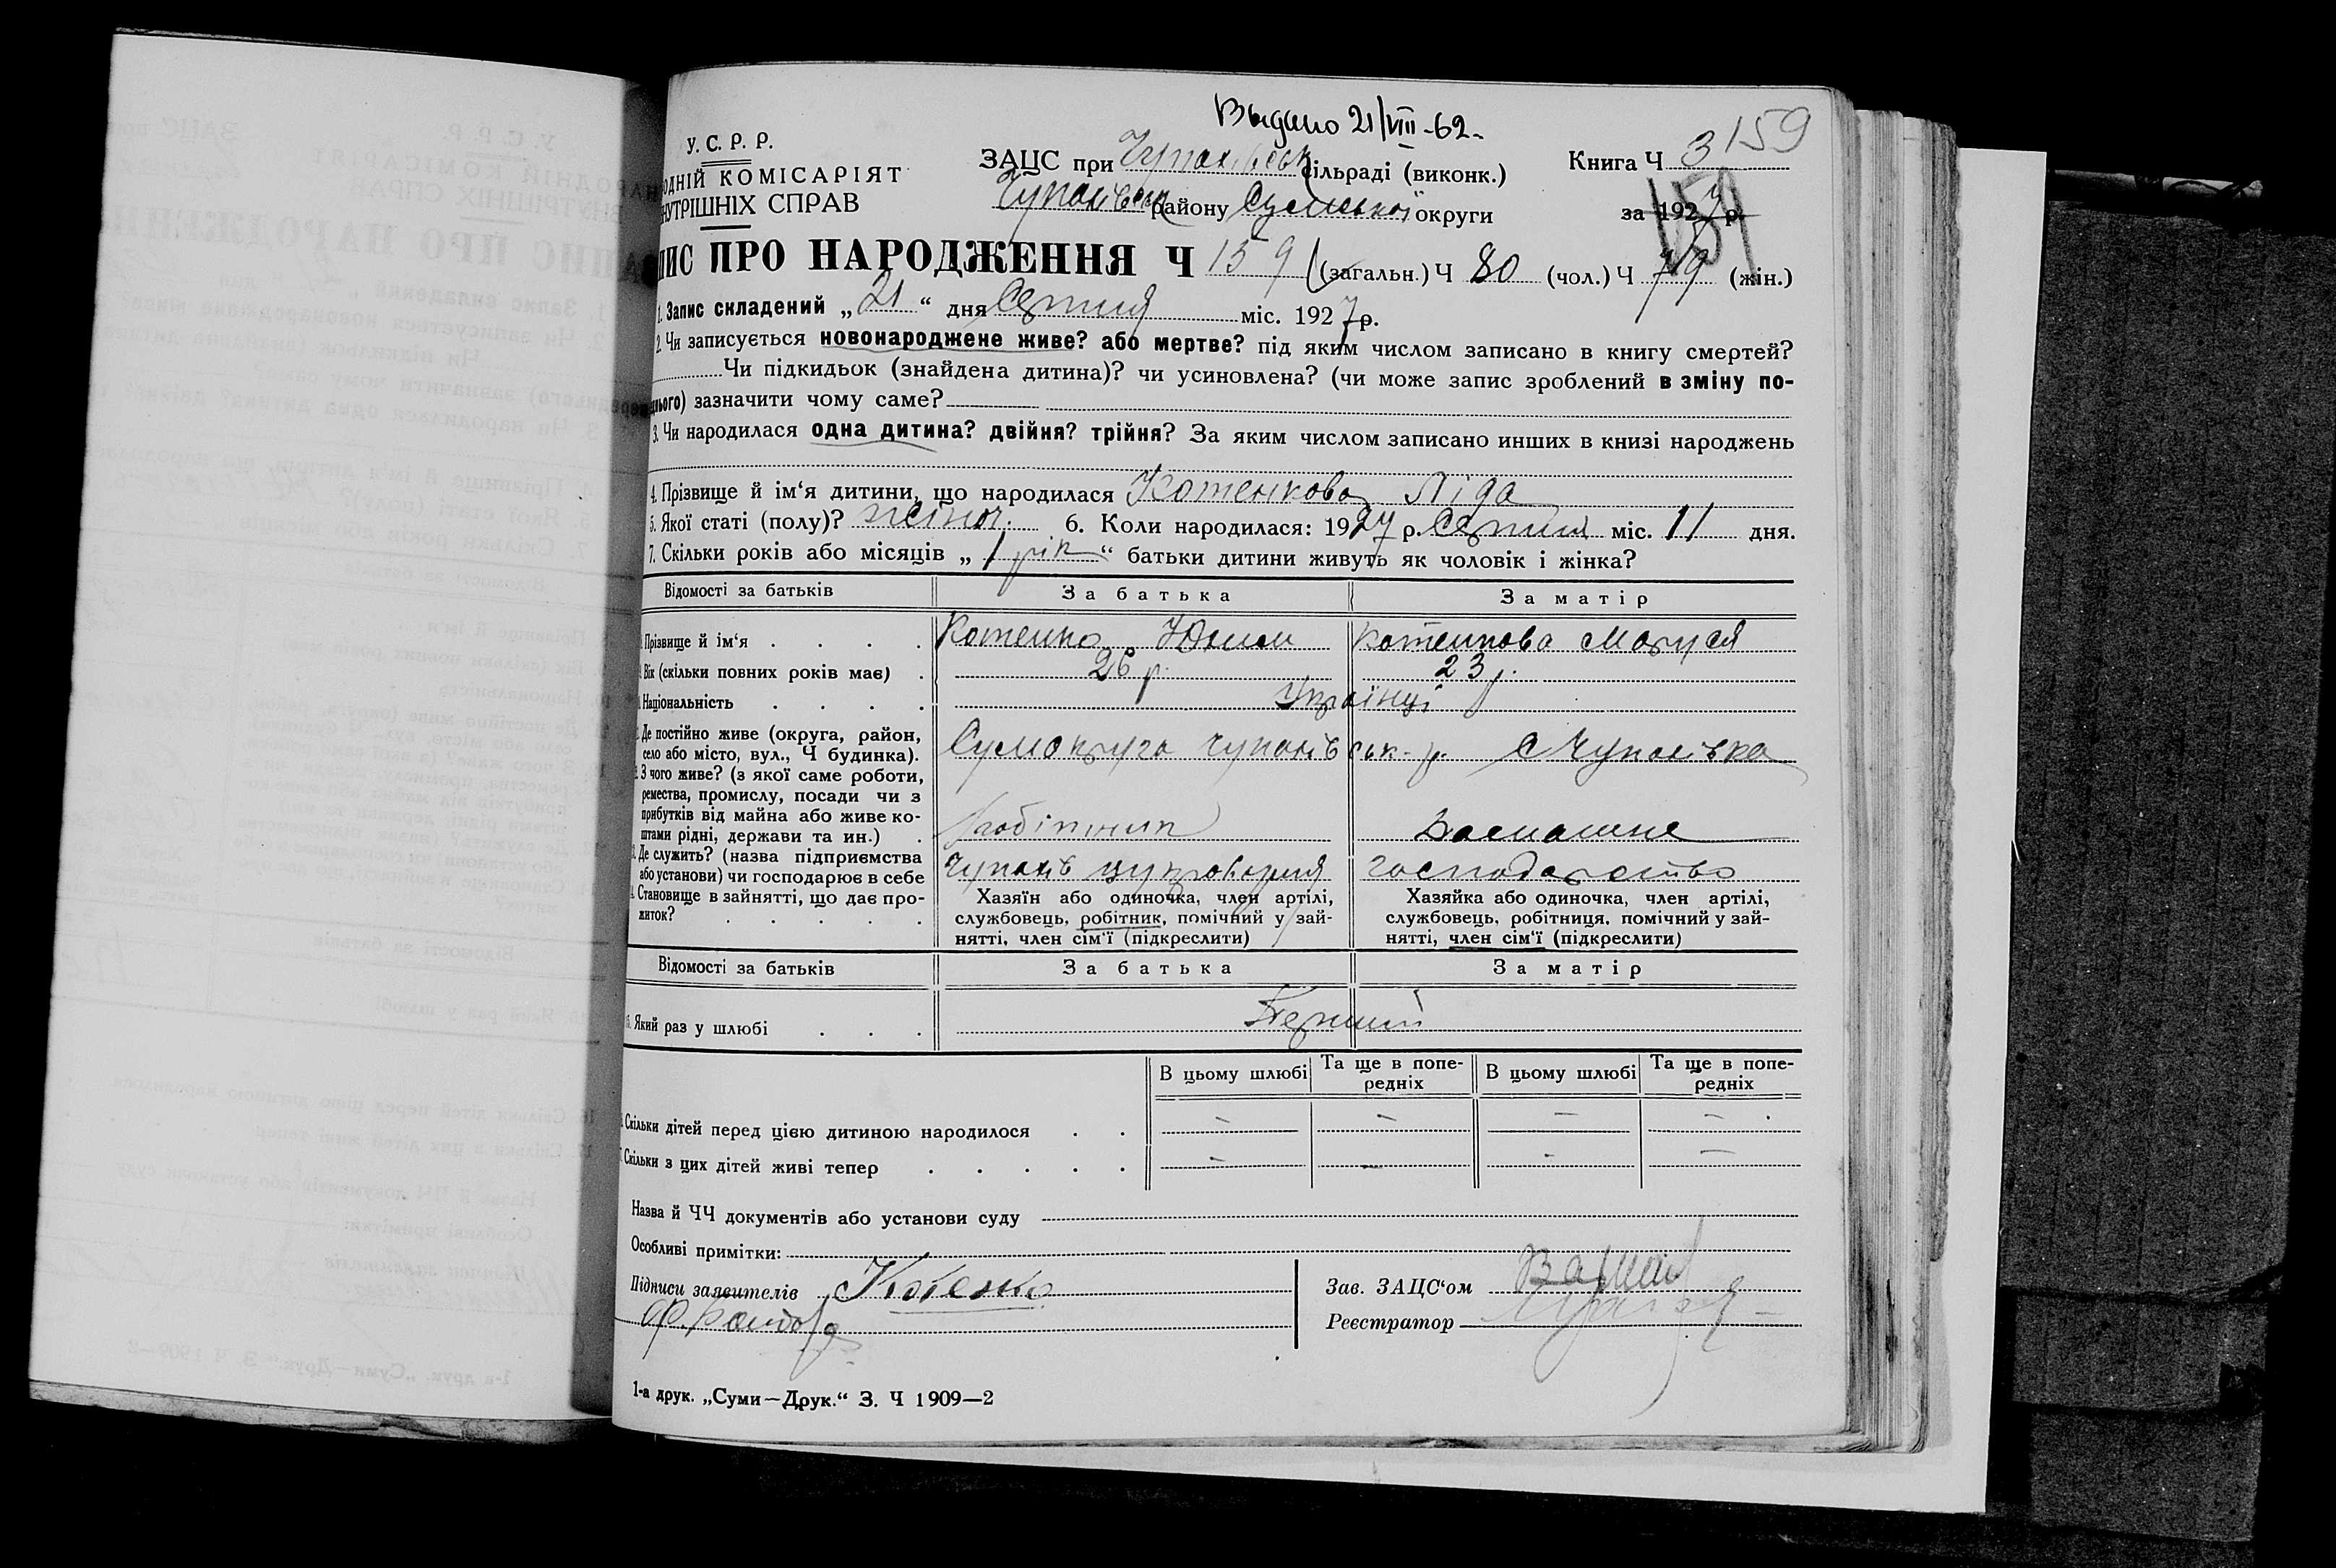 Выдано 21/VIII-62.
159
У. С. Р. Р.
ОДНІЙ КОМІСАРІЯТ
НУТРІШНІХ СПРАВ
ЗАЦС при Чупахівськ сільраді (виконк.)
Чупахівськ району Сумської округи
Книга Ч 3
за 1927 р.
159
ИС ПРО НАРОДЖЕННЯ Ч 159 (загальн.) Ч 80 (чол.) Ч 79 (жін.)
1. Запис складений „21“ дня Серпня міс. 1927 р.
2. Чи записується новонароджене живе? або мертве? під яким числом записано в книгу смертей?
Чи підкидьок (знайдена дитина)? чи усиновлена? (чи може запис зроблений в зміну по-
нього) зазначити чому саме?
3. Чи народилася одна дитина? двійня? трійня? За яким числом записано инших в книзі народжень
4. Прізвище й ім‘я дитини, що народилася Котенкова Ліда
5. Якої статі (полу)? жіноч. 6. Коли народилася: 1927 р. Серпня міс. 11 дня.
7. Скільки років або місяців „1 рік“ батьки дитини живуть як чоловік і жінка?
Відомості за батьків За батька За матір
Прізвище й ім‘я Котенко Юхим Котенкова Маруся
Вік (скільки повних років має) 26 р. 23 р.
Національність Українці
Де постійно живе (округа, район,
село або місто, вул., Ч будинка). Сумокруга Чупахівськ-р. с Чупахівка
З чого живе? (з якої саме роботи,
ремества, промислу, посади чи з
прибутків від майна або живе ко-
штами рідні, держави та ин.) робітник домашнє
Де служить? (назва підприємства
або установи) чи господарює в себе Чупахів цукроварня господарство
Становище в зайнятті, що дає про-
житок?
Хазяїн або одиночка, член артілі,
службовець, робітник, помічний у зай-
нятті, член сім‘ї (підкреслити)
Хазяйка або одиночка, член артілі,
службовець, робітниця, помічний у зай-
нятті, член сім‘ї (підкреслити)
Відомості за батьків За батька За матір
Який раз у шлюбі Перший
В цьому шлюбі Та ще в попе-
редніх В цьому шлюбі Та ще в попе-
редніх
Скільки дітей перед цією дитиною народилося - - - -
Скільки з цих дітей живі тепер - - - -
Назва й ЧЧ документів або установи суду
Особливі примітки:
Підписи заявителів Котенко
Зав. ЗАЦС‘ом
Реєстратор
1-а друк. „Суми—Друк.“ З. Ч 1909—2